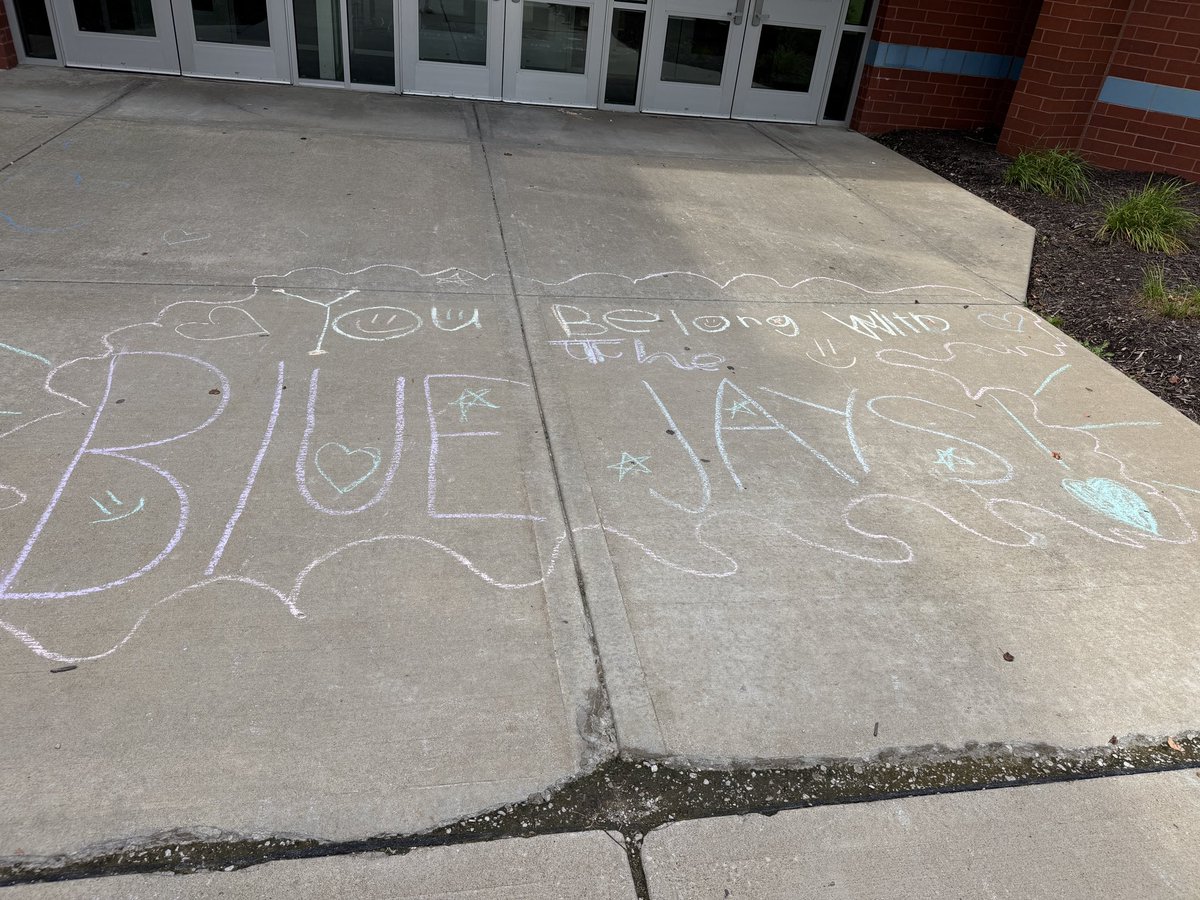 You Belong With
The
BlUE JAYS